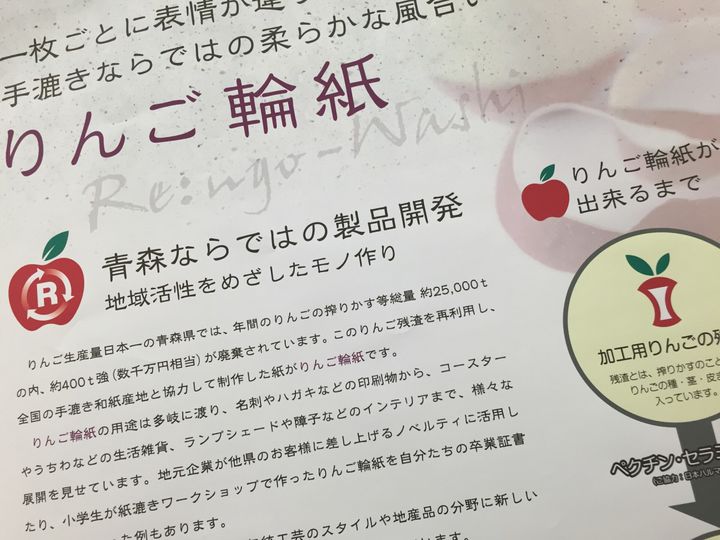 一枚ごとに表情が違
手漉きならではの柔らかな風合い
りんご輪紙
Re:ngo-Washi
青森ならではの製品開発
地域活性をめざしたモノ作り
R
りんご生産量日本一の青森県では、年間のりんごの搾りかす等総量 約25,000t
の内、約400t強(数千万円相当)が廃棄されています。このりんご残渣を再利用し、
全国の手漉き和紙産地と協力して制作した紙がりんご輪紙です。
りんご輪紙の用途は多岐に渡り、名刺やハガキなどの印刷物から、コースター
やうちわなどの生活雑貨、ランプシェードや障子などのインテリアまで、様々な
展開を見せています。地元企業が他県のお客様に差し上げるノベルティに活用し
たり、小学生が紙漉きワークショップで作ったりんご輪紙を自分たちの卒業証書
た例もあります。
統工芸のスタイルや地産品の分野に新しい
りんご輪紙が
出来るまで
加工用りんごの残
残渣とは、搾りかすのこと
りんごの種・茎・皮
入っています。
ペクチン・セラ
(ご協力:日本ハルマ